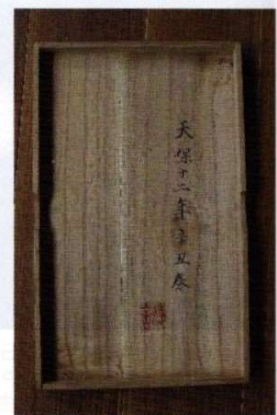 天保十二年辛丑春